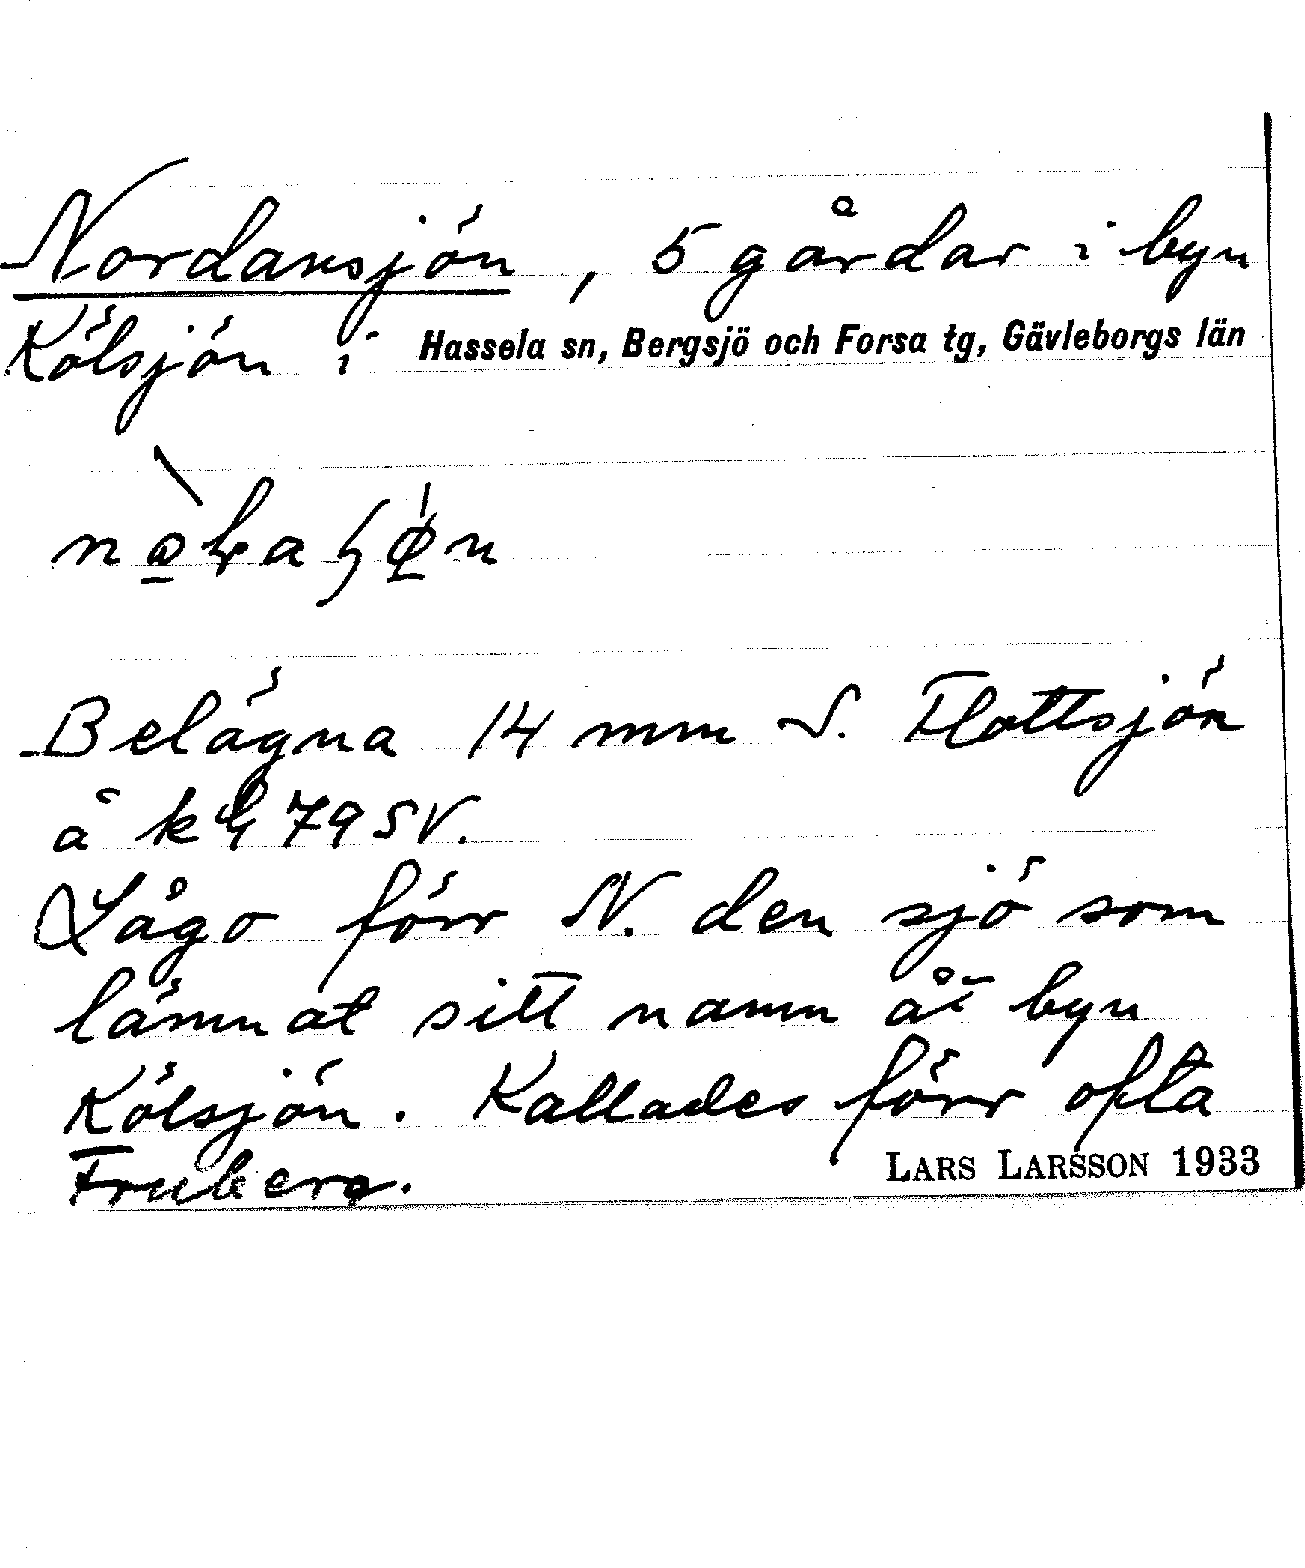 Nordansjön, 5 gårdar i byn
Kölsjön i Hassela sn, Bergsjö och Forsa tg, Gävleborgs län
Belägna 14 mm S. Flottsjön
å kbl 79 SV.
Lågo förr N. den sjö som
lämnat sitt namn åt byn
Kölsjön. Kallades förr ofta
Fruberg.
LARS LARSSON 1933